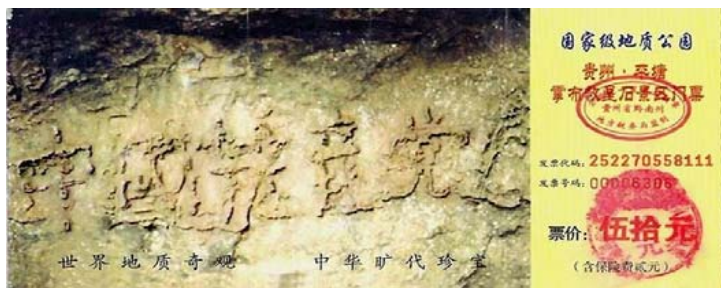 中国共産党
世界地质奇观 中华旷代珍宝
国家级地质公园
贵州·平塘
掌布救星石景区门票
贵州省黔南州
发票代码: 252270558111
发票号码: 00006306
票价: 伍拾元
(含保险费贰元)